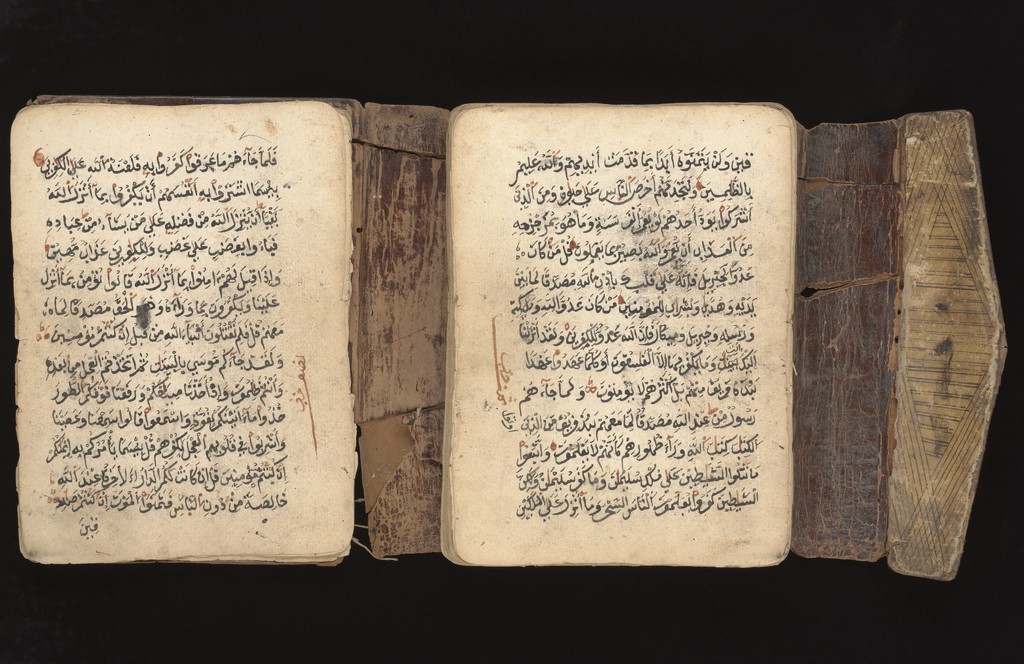 فلما جاءهم ما عرفوا كفروا به فلعنة الله على الكفرين
بئسما اشتروا به أنفسهم أن يكفروا بما أنزل الله
بغيا أن ينزل الله من فضله على من يشاء من عباده
فباءو بغضب على غضب وللكفرين عذاب مهين
وإذا قيل لهم ءامنوا بما أنزل الله قالوا نؤمن بما أنزل
علينا ويكفرون بما وراءه وهو الحق مصدقا لما
معهم قل فلم تقتلون أنبياء الله من قبل إن كنتم مؤمنين
ولقد جاءكم موسى بالبينت ثم اتخذتم العجل من بعده
وأنتم ظلمون وإذ أخذنا ميثقكم ورفعنا فوقكم الطور
خذوا ما ءاتينكم بقوة واسمعوا قالوا سمعنا وعصينا
وأشربوا في قلوبهم العجل بكفرهم قل بئسما يأمركم به إيمنكم
إن كنتم مؤمنين قل إن كانت لكم الدار الاخرة عند الله
خالصة من دون الناس فتمنوا الموت إن كنتم صد
قين
قين ولن يتمنوه أبدا بما قدمت أيديهم والله عليم
بالظلمين ولتجدنهم أحرص الناس على حيوة ومن الذين
أشركوا يود أحدهم لو يعمر ألف سنة وما هو بمزحزحه
من العذاب أن يعمر والله بصير بما يعملون قل من كان
عدوا لجبريل فإنه نزله على قلبك بإذن الله مصدقا لما بين
يديه وهدى وبشرى للمؤمنين من كان عدوا لله وملئكته
ورسله وجبريل وميكىل فإن الله عدو للكفرين ولقد أنزلنا
إليك ءايت بينت وما يكفر بها إلا الفسقون أوكلما عهدوا عهدا
نبذه فريق منهم بل أكثرهم لا يؤمنون ولما جاءهم
رسول من عند الله مصدق لما معهم نبذ فريق من الذين
أوتوا
الكتب كتب الله وراء ظهورهم كأنهم لا يعلمون واتبعوا
ما تتلوا الشيطين على ملك سليمن وما كفر سليمن ولكن
الشيطين كفروا يعلمون الناس السحر وما أنزل على الملكين